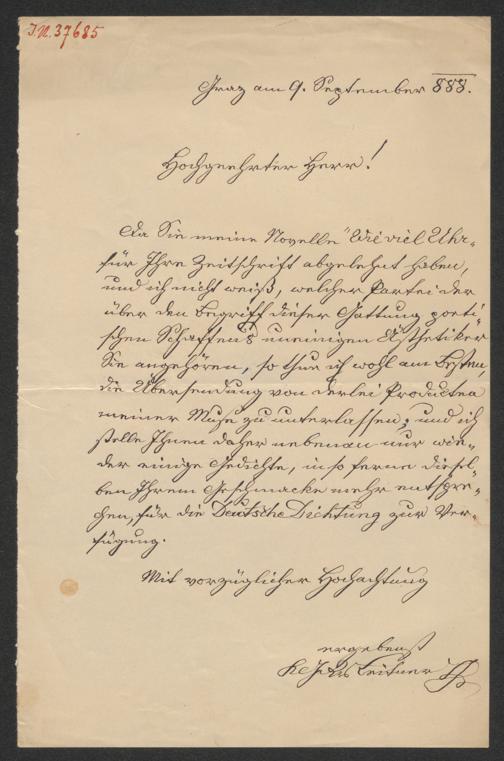 I.N. 37685
Graz am 9. September 888.
Hochgeehrter Herr!
Da Sie meine Novelle "Wie viel Uhr"
für Ihre Zeitschrift abgelehnt haben,
und ich nicht weiß, welcher Partei der
über den Begriff dieser Gattung poeti-
schen Schaffens uneinigen Ästhetiker
Sie angehören, so thue ich wohl am Besten,
die Übersendung von derlei Producten
meiner Muse zu unterlassen, und ich
stelle Ihnen daher nebenan nur wie-
der einige Gedichte, in so ferne diesel-
ben Ihrem Geschmacke mehr entspre-
chen, für die Deutsche Dichtung zur Ver-
fügung.
Mit vorzüglicher Hochachtung
ergebenst
Leitner